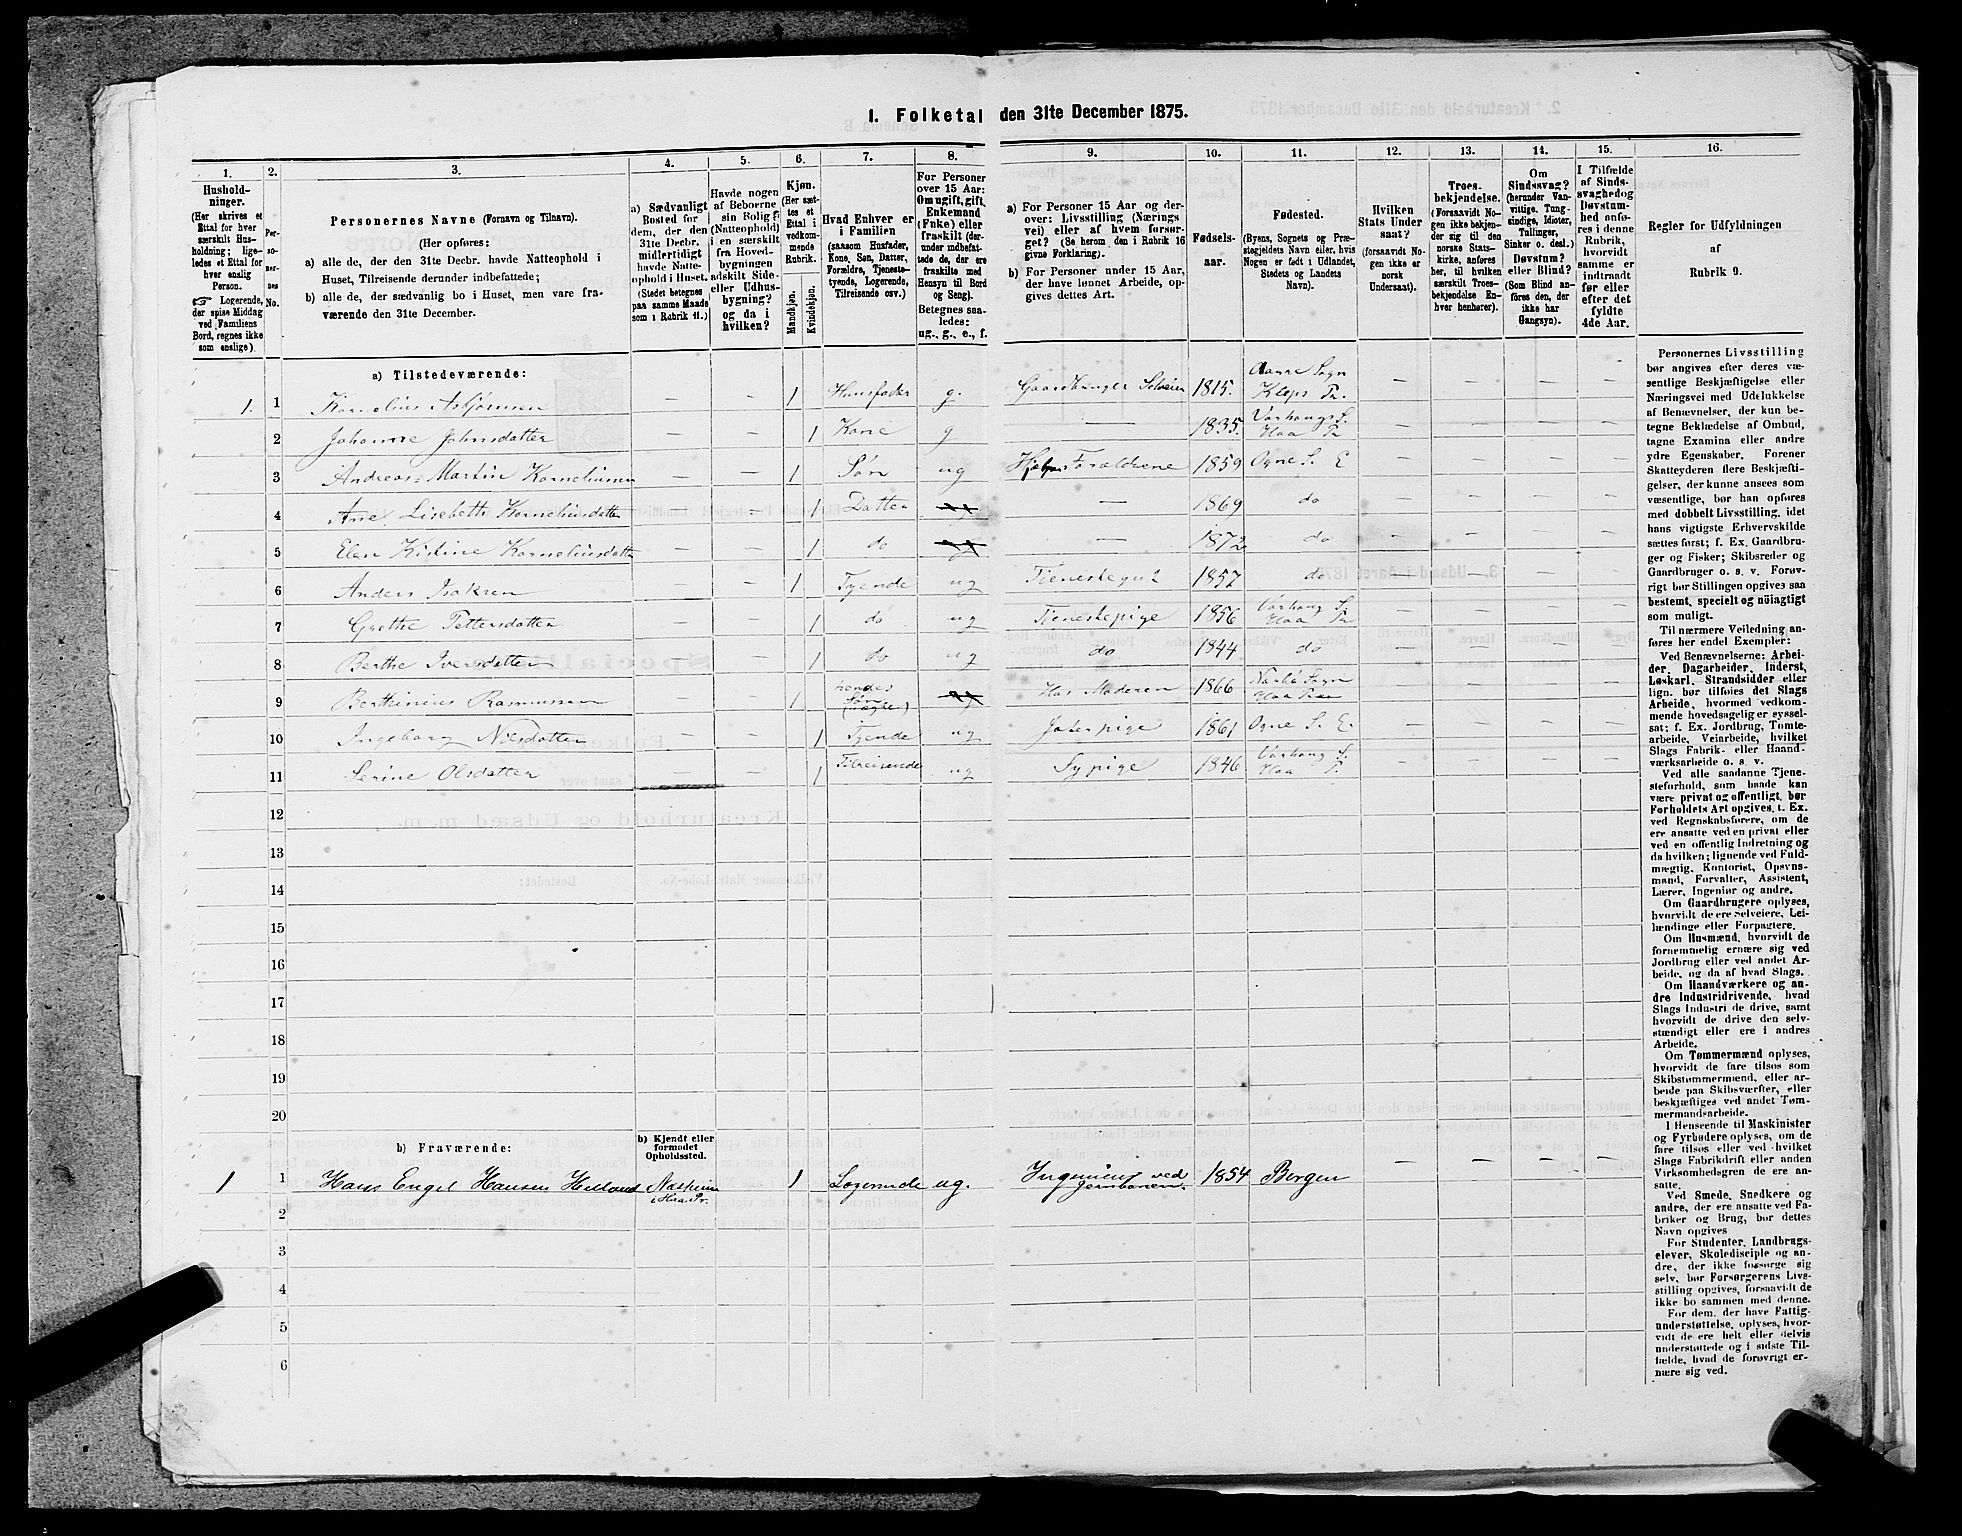 1. Folketal den 31te December 1875.
1. 2. 3. 4. 5. 6. 7. 8. 9. 10. 11. 12. 13. 14. 15. 16.
Hushold-
ninger.
(Her skrives et
Ettal for hver
særskilt Hus-
holdning; lige-
ledes et Ettal for
hver enslig
Person.
Logerende,
der spise Middag
ved Familiens
Bord, regnes ikke
som enslige)
Per-
so-
ner-
nes
No.
Personernes Navne (Fornavn og Tilnavn).
(Her opføres:
a) alle de, der den 31te Decbr. havde Natteophold i
Huset, Tilreisende derunder indbefattede;
b) alle de, der sædvanlig bo i Huset, men vare fra-
værende den 31te December.
a) Sædvanligt
Bosted for
dem, der den
31te Decbr.
midlertidigt
havde Natte-
ophold i Huset.
(Stedet betegnes
paa samme Maade
som i Rubrik 11.)
Havde nogen
af Beboerne
sin Bolig
(Natteophold)
i en særskilt
fra Hoved-
bygningen
adskilt Side-
eller Udhus-
bygning?
og da i
hvilken?
Kjøn.
(Her sæt-
tes et
Ettal i
vedkom-
mende
Rubrik.
Mandkjøn.
Kvindekjøn.
Hvad Enhver er
i Familien
(saasom Husfader,
Kone, Søn, Datter,
Forældre, Tjeneste-
tyende, Logerende,
Tilreisende osv.)
For Personer
over 15 Aar:
Om ugift, gift,
Enkemand
(Enke) eller
fraskilt (der-
under indbefat-
tede de, der ere
fraskilte med
Hensyn til Bord
og Seng).
Betegnes saa-
ledes:
ug., g., e., f.
a) For Personer 15 Aar og der-
over: Livsstilling (Nærings
vei) eller af hvem forsør-
get? (Se herom den i Rubrik 16
givne Forklaring).
b) For Personer under 15 Aar,
der have lønnet Arbeide, op-
gives dettes Art.
Fødsels-
aar.
Fødested.
(Byens, Sognets og Præ-
stegjeldets Navn eller, hvis
Nogen er født i Udlandet,
Stedets og Landets
Navn).
Hvilken
Stats Under
saat?
(forsaavidt No-
gen ikke er
norsk
Undersaat).
Troes-
bekjendelse.
(Forsaavidt No-
gen ikke bekjen-
der sig til den
norske Stats-
kirke, anføres
her, til hvilken
særskilt Troes-
bekjendelse En-
hver henhører).
Om
Sindssvag?
(herunder Van-
vittige, Tung-
sindige, Idioter,
Tullinger,
Sinker o. desl.)
Døvstum?
eller Blind?
(Som Blind an-
føres den, der
ikke har
Gangsyn).
I Tilfælde
af Sinds-
svaghed og
Døvstum-
hed anfø-
res i denne
Rubrik,
hvorvidt
samme er
indtraadt
før eller
efter det
fyldte
4de Aar.
Regler for Udfyldningen
af
Rubrik 9.
a) Tilstedeværende:
1. 1 Kornelius Asbjørnsen — — 1 Husfader g. Gaardbruger Selveier 1815. Sogn Kleps Pr. — — — —
2 Johanne Johnsdatter — — 1 Kone g — 1835. Varhougs S. Haa Pr — — — —
3 Andreas Martin Korneliussen — — 1 Søn ug Hjelper Forældrene 1859 Ogne S. E — — — —
4 Ane Lisebeth Korneliusdatter — — 1 Datter ug — 1869 do — — — —
5 Elen Kistine Korneliusdatter — — 1 do ug — 1872 do — — — —
6 Anders Isaksen — — 1 Tyende ug Tienestegut 1857 do — — — —
7 Grethe Pettersdatter — — 1 do ug Tienestepige 1856 Varhoug S. Haa Pr — — — —
8 Berthe Iversdatter — — 1 do ug do 1844 do — — — —
9 Berthinius Rasmussen — — 1 hendes Søn (uægte) ug Hos Moderen 1866 Nærbø Sogn Haa Præ — — — —
10 Ingeborg Nilsdatter — — 1 Tjende ug 1861 Ogne S. E. — — — —
11 Serine Olsdatter — — 1 Tilreisende ug Sypige 1846 Varhoug S. Haa P. — — — —
12
13
14
15
16
17
18
19
20
b) Fraværende:
b) Kjendt eller
formodet
Opholdssted.
1 1 Hans Engel Hansen Helland i Haa Pr. 1 Logerende ug. Ingeniør ved Jernbanen. 1854 Bergen — — — —
2
3
4
5
6
Personernes Livsstilling
bør angives efter deres væ-
sentlige Beskjæftigelse eller
Næringsvei med Udelukkelse
af Benævnelser, der kun be-
tegne Beklædelse af Ombud,
tagne Examina eller andre
ydre Egenskaber. Forener
Skatteyderen flere Beskjæfti-
gelser, der kunne ansees som
væsentlige, bør han opføres
med dobbelt Livsstilling, idet
hans vigtigste Erhvervskilde
sættes først; f. Ex. Gaardbru-
ger og Fisker; Skibsreder og
Gaardbruger o. s. v. Forøv-
rigt bør Stillingen opgives saa
bestemt, specielt og nöiagtigt
som muligt.
Til nærmere Veiledning an-
føres her endel Exempler:
Ved Benævnelserne: Arbei-
der, Dagarbeider, Inderst,
Løskarl, Strandsidder eller
lign. bør tilføies det Slags
Arbeide, hvormed vedkom-
mende hovedsagelig er syssel-
sat; f. Ex. Jordbrug, Tomte-
arbeide, Veiarbeide, hvilket
Slags Fabrik- eller Haand-
værksarbeide o. s. v.
Ved alle saadanne Tjene-
steforhold, som baade kan
være privat og offentligt, bør
Forholdets Art opgives, t. Ex.
ved Regnskabsførere, om de
ere ansatte ved en privat eller
ved en offentlig Indretning og
da hvilken; lignende ved Fuld-
mægtig, Kontorist, Opsyns-
mand, Forvalter, Assistent,
Lærer, Ingeniør og andre.
Om Gaardbrugere oplyses,
hvorvidt de ere Selveiere, Lei-
lændinge eller Forpagtere.
Om Husmænd, hvorvidt de
fornemmelig ernære sig ved
Jordbrug eller ved andet Ar-
beide, og da af hvad Slags.
Om Haandværkere og an-
dre Industridrivende, hvad
Slags Industri de drive, samt
hvorvidt de drive den selv-
stændigt eller ere i andres
Arbeide.
Om Tømmermænd oplyses,
hvorvidt de fare tilsøs som
Skibstømmermænd, eller ar-
beide paa Skibsværfter, eller
beskjæftiges ved andet Tøm-
mermandsarbeide.
I Henseende til Maskinister
og Fyrbødere oplyses, om de
fare tilsøs eller ved hvilket
Slags Fabrikdrift eller anden
Virksomhedsgren de ere an-
satte.
Ved Smede, Snedkere og
andre, der ere ansatte ved Fa-
briker og Brug, bør dettes
Navn opgives
For Studenter, Landbrugs-
elever, Skoledisciple og an-
dre, der ikke forsørge sig
selv, bør Forsørgerens Livs-
stilling opgives, forsaavidt de
ikke bo sammen med denne.
For dem, der have Fattig-
understøttelse, oplyses, hvor-
vidt de ere helt eller delvis
understøttede og i sidste Til-
fælde, hvad de forøvrigt er-
nære sig ved.